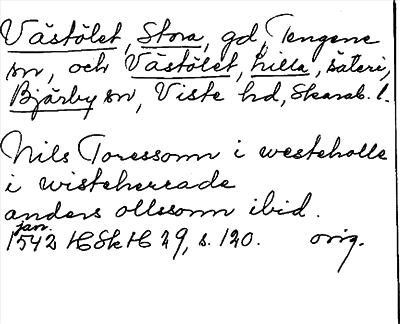 Västölet, Stora, gd, Tengene
sn, och Västölet, Lilla, säteri,
Bjärby sn, Viste hd, Skarab. l.
Nils Toressonn i westeholle
i wisteherrade
anders ollssonn ibid.
jan.
1542 HSkH 29, s. 120. orig.